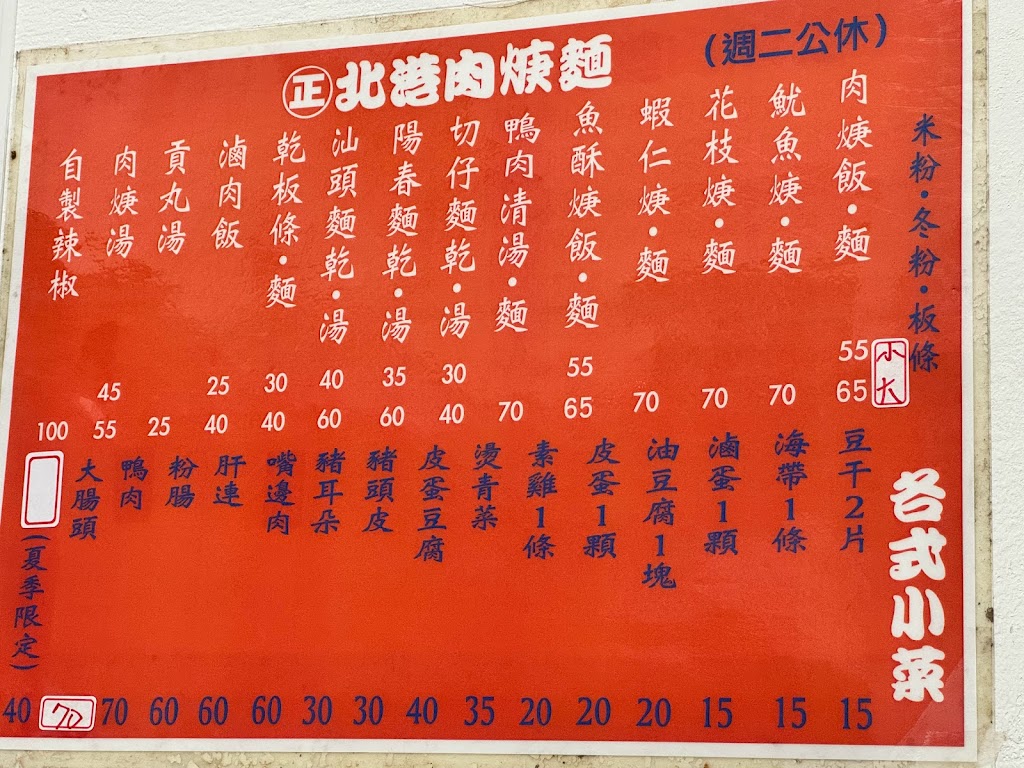 正北港肉焿麵
(週二公休)
米粉・冬粉・板條
小
大
肉焿飯・麵 55 65
魷魚焿・麵 70
花枝焿・麵 70
蝦仁焿・麵 70
魚酥焿飯・麵 55 65
鴨肉清湯・麵 70
切仔麵乾・湯 30 40
陽春麵乾・湯 35 60
汕頭麵乾・湯 40 60
乾板條・麵 30 40
滷肉飯 25 40
貢丸湯 25
肉焿湯 45 55
自製辣椒 100
各式小菜
豆干2片 15
海帶1條 15
滷蛋1顆 15
油豆腐1塊 20
皮蛋1顆 20
素雞1條 20
燙青菜 35
皮蛋豆腐 40
豬頭皮 30
豬耳朵 30
嘴邊肉 60
肝連 60
粉腸 60
鴨肉 70
大腸頭 70
(夏季限定) 40